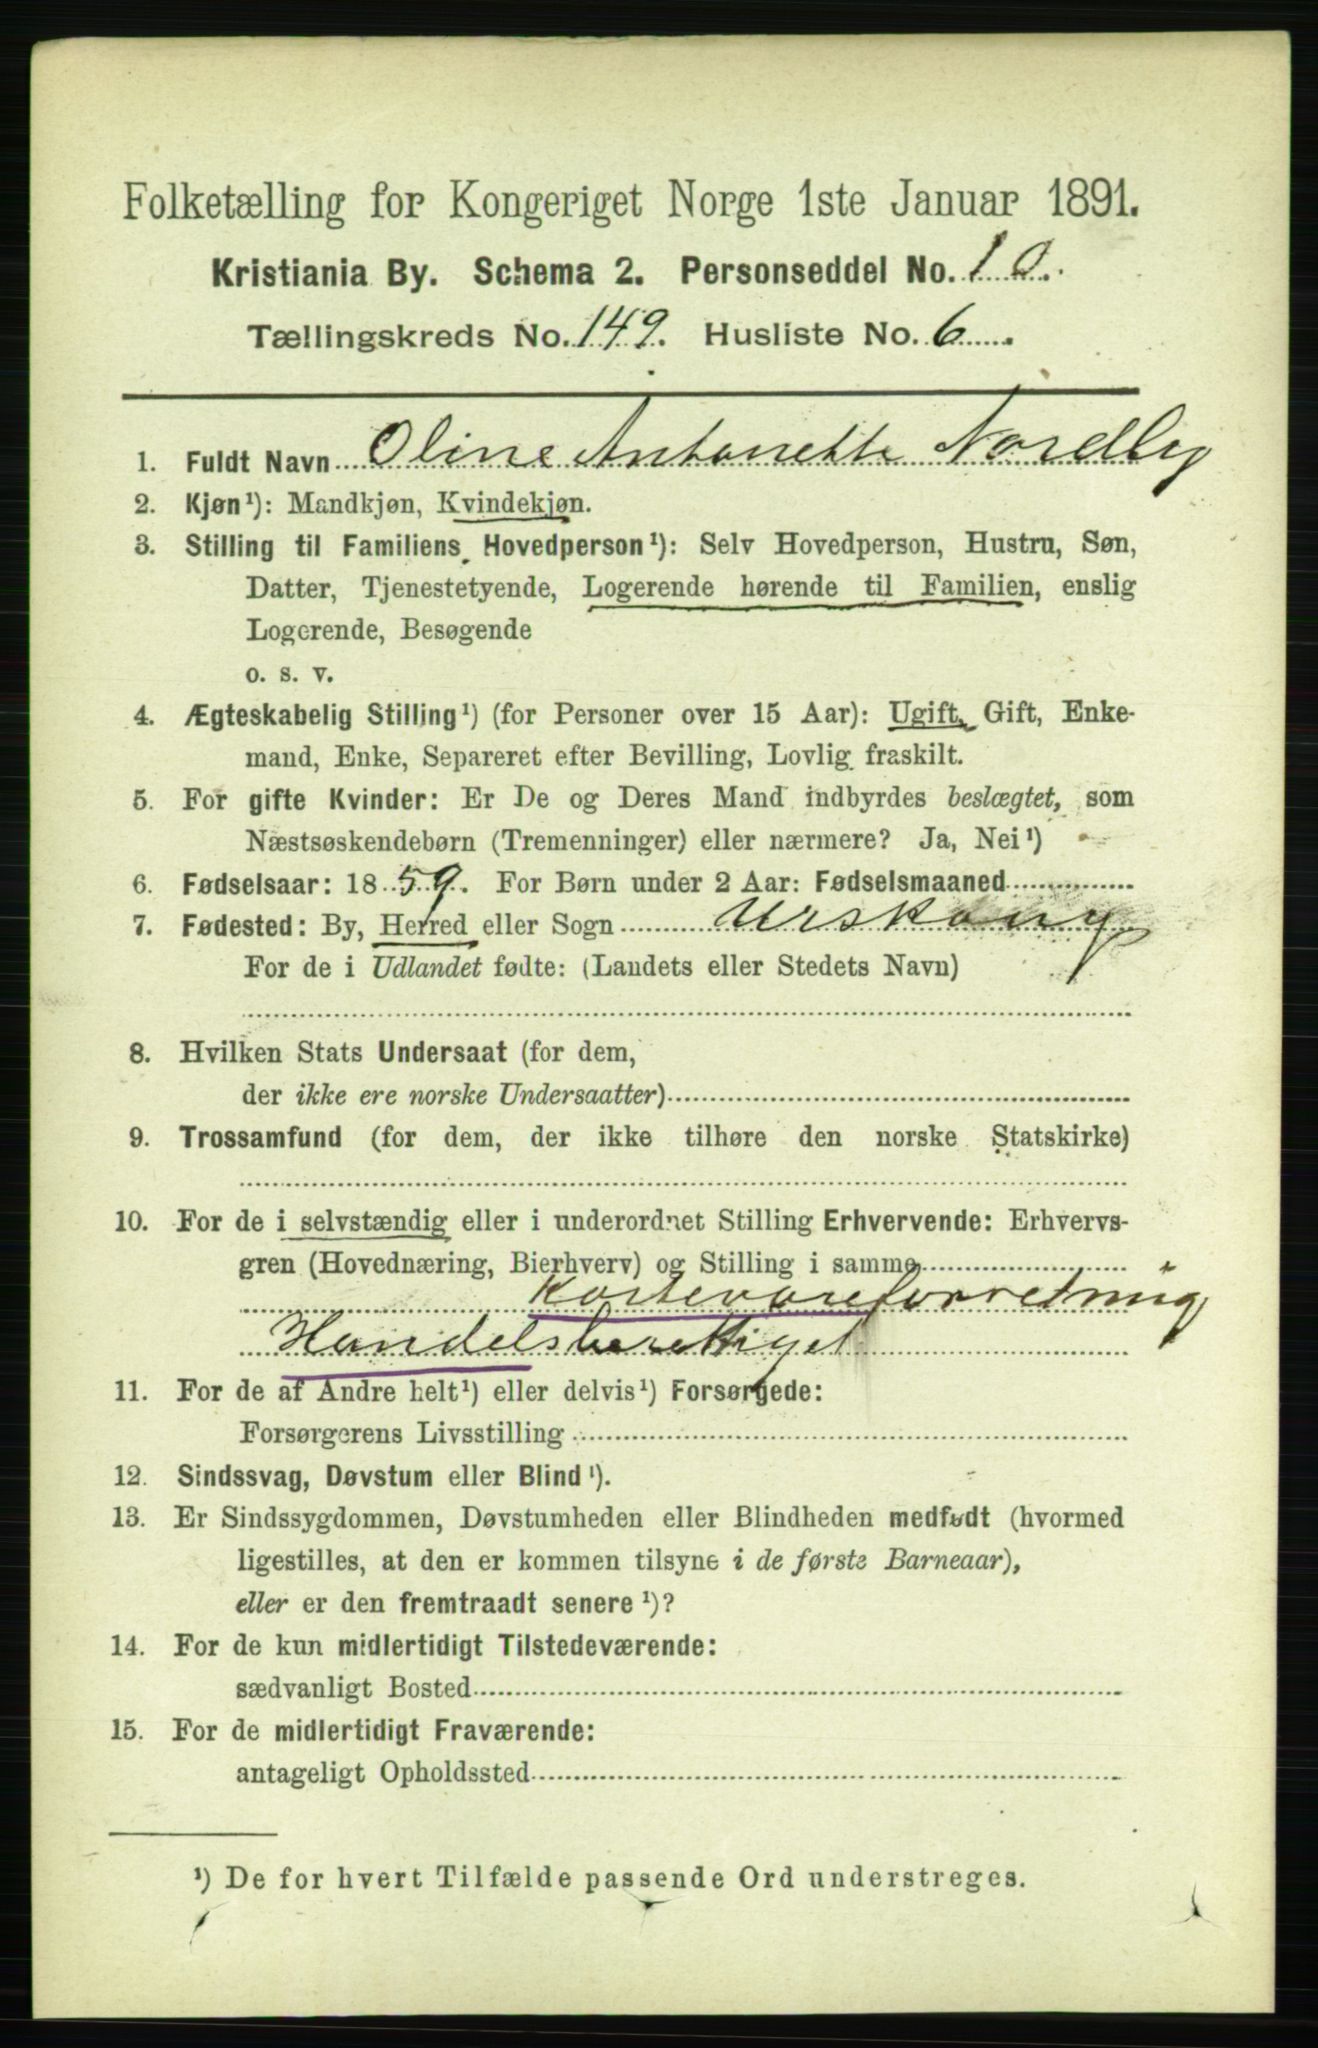 Folketælling for Kongeriget Norge 1ste Januar 1891.
Kristiania By. Schema 2. Personseddel No. 10.
Tællingskreds No. 149. Husliste No. 6
1. Fuldt Navn Oline Antonette Nordby
2. Kjøn¹): Mandkjøn, Kvindekjøn.
3. Stilling til Familiens Hovedperson¹): Selv Hovedperson, Hustru, Søn,
Datter, Tjenestetyende, Logerende hørende til Familien, enslig
Logerende, Besøgende
o. s. v.
4. Ægteskabelig Stilling¹) (for Personer over 15 Aar): Ugift, Gift, Enke-
mand, Enke, Separeret efter Bevilling, Lovlig fraskilt.
5. For gifte Kvinder: Er De og Deres Mand indbyrdes beslægtet, som
Næstsøskendebørn (Tremenninger) eller nærmere? Ja, Nei¹)
6. Fødselsaar: 1859. For Børn under 2 Aar: Fødselsmaaned
7. Fødested: By, Herred eller Sogn Urskoug
For de i Udlandet fødte: (Landets eller Stedets Navn)
8. Hvilken Stats Undersaat (for dem,
der ikke ere norske Undersaatter)
9. Trossamfund (for dem, der ikke tilhøre den norske Statskirke)
10. For de i selvstændig eller i underordnet Stilling Erhvervende: Erhvervs-
gren (Hovednæring, Bierhverv) og Stilling i samme
Kortevareforretning
Handelsberettiget
11. For de af Andre helt¹) eller delvis¹) Forsørgede:
Forsørgerens Livsstilling
12. Sindssvag, Døvstum eller Blind¹).
13. Er Sindssygdommen, Døvstumheden eller Blindheden medfødt (hvormed
ligestilles, at den er kommen tilsyne i de første Barneaar),
eller er den fremtraadt senere¹)?
14. For de kun midlertidigt Tilstedeværende:
sædvanligt Bosted
15. For de midlertidigt Fraværende:
antageligt Opholdssted
¹) De for hvert Tilfælde passende Ord understreges.